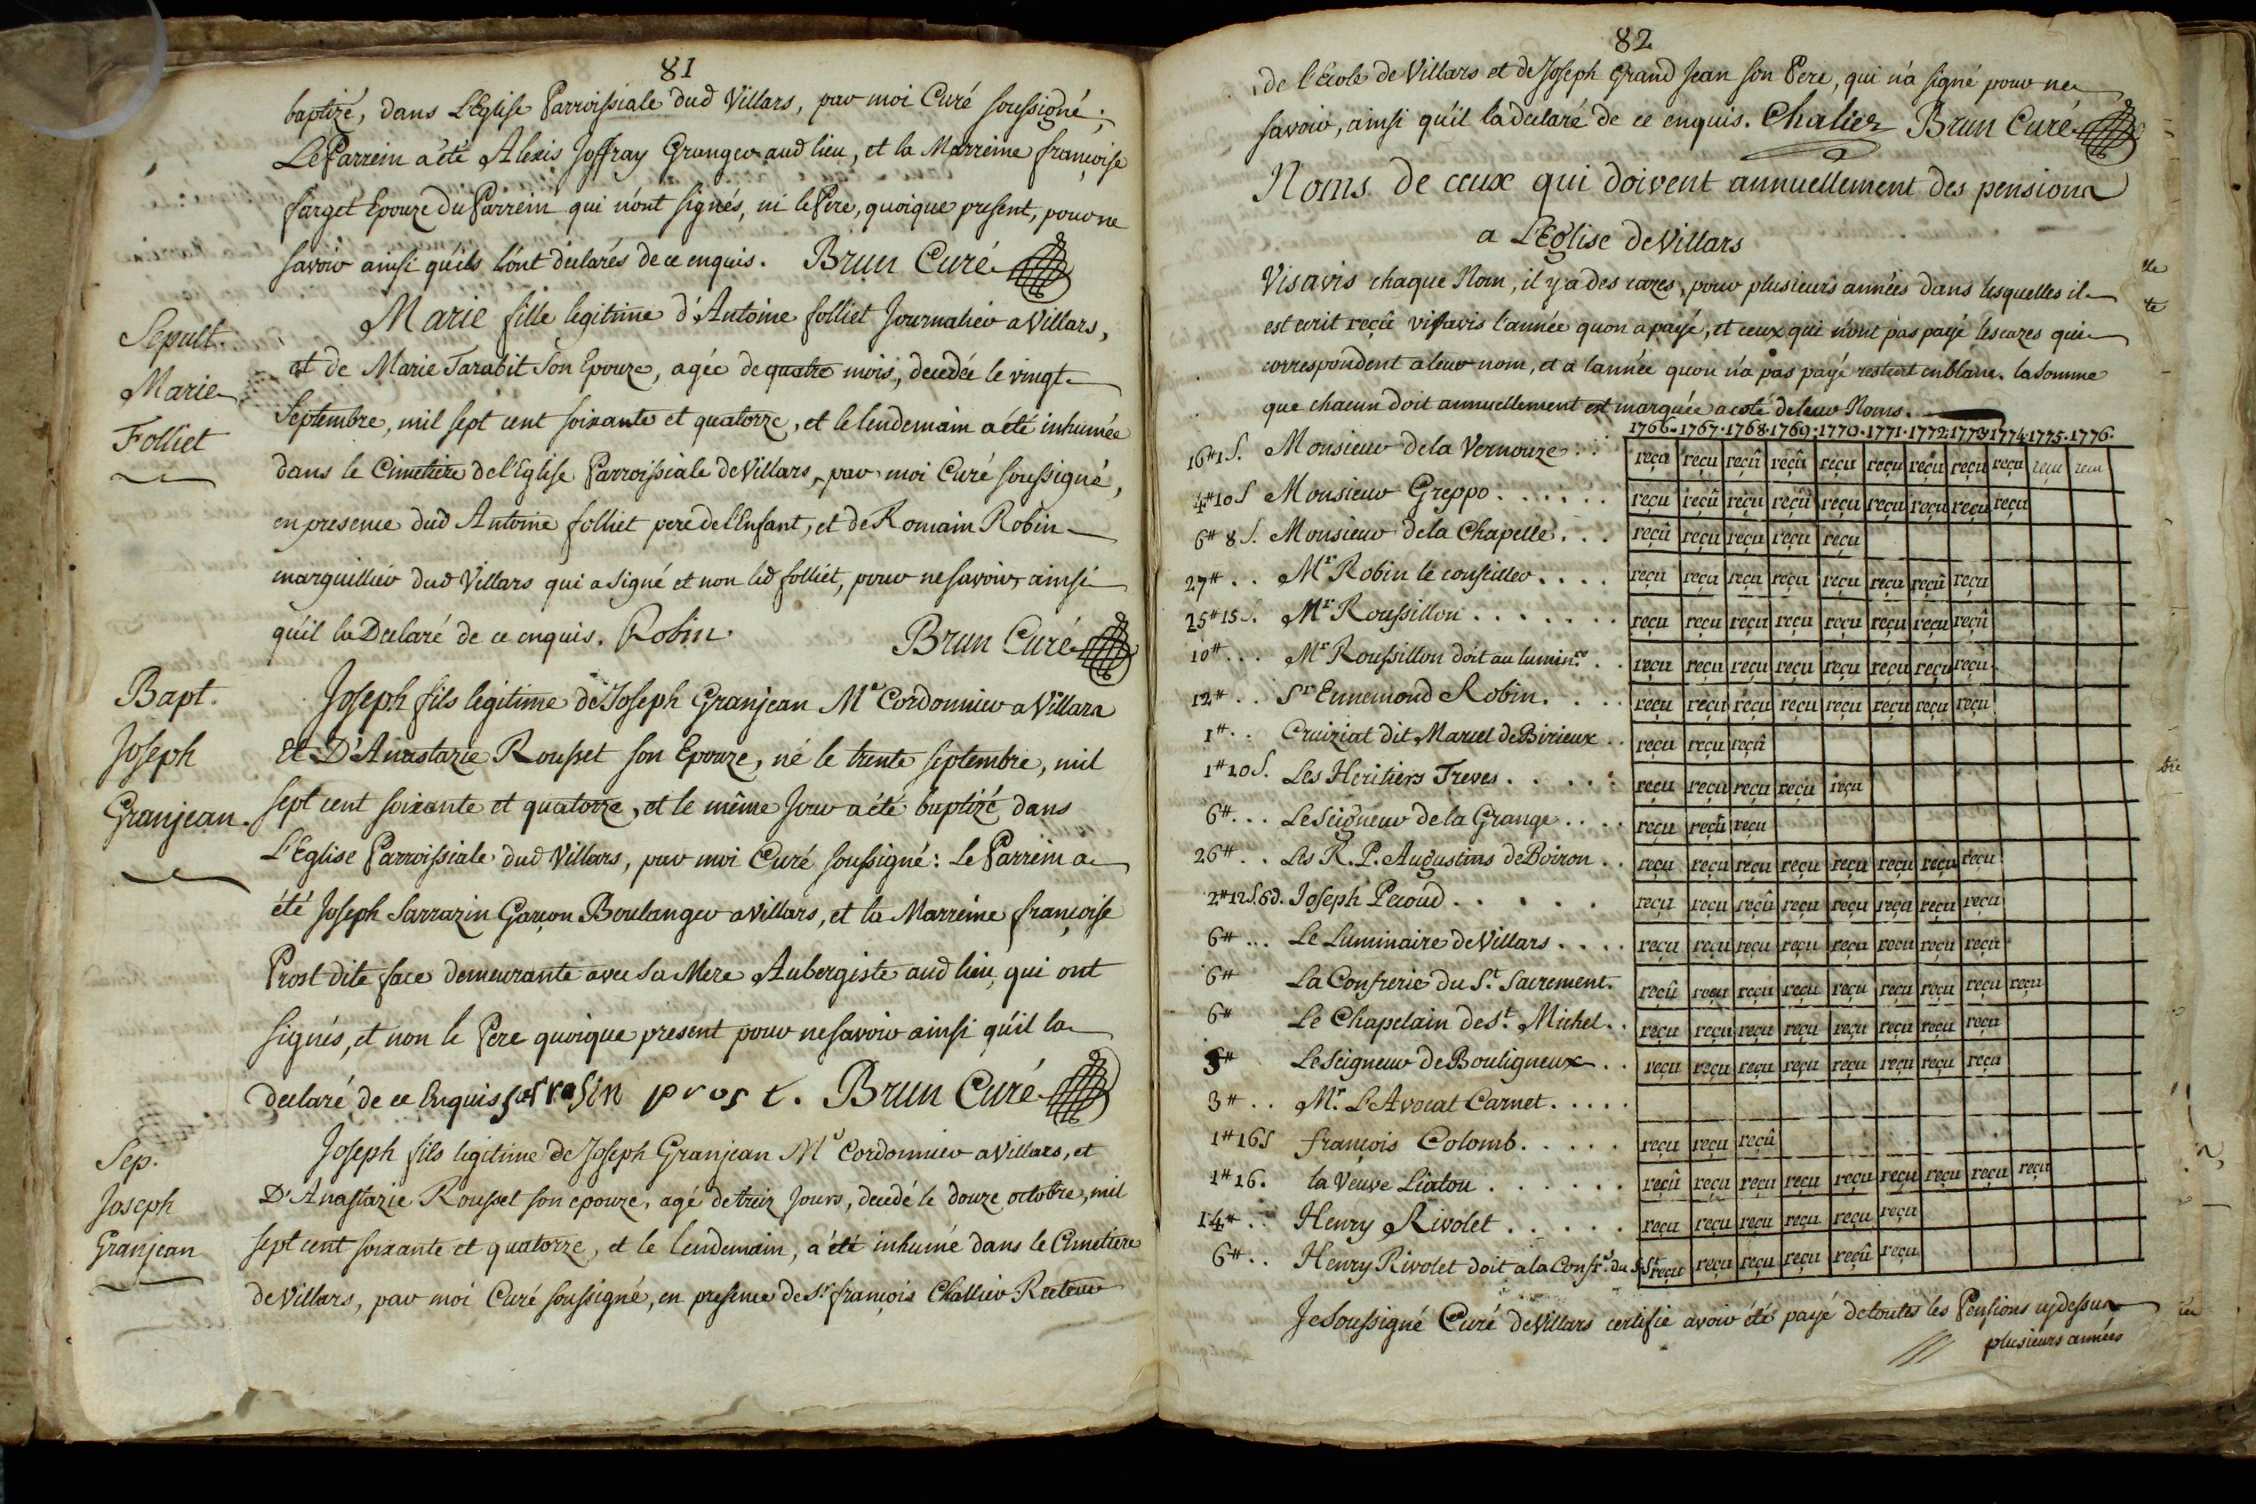 81
baptizé, dans L'Eglise Parroissiale dud Villars, par moi Curé soussigné;
Le Parrein a été Alexis Joffray Granger aud lieu, et la Marreine françoise
farget Epouze du Parrein qui n'ont signés, ni le Pere, quoique present, pour ne
savoir ainsi qu'ils l'ont declarés de ce enquis. Brun Curé
Sepult.
Marie
Folliet
Marie fille legitime d'Antoine folliet Journalier a Villars,
et de Marie Tarabit son Epouze, agée de quatre mois, decedée le vingt
Septembre, mil sept cent soixante et quatorze, et le lendemain a été inhumée
dans le Cimetiere de l'Eglise Parroissiale de Villars, par moi Curé soussigné,
en presence dud Antoine folliet pere de l'Enfant, et de Romain Robin
marguillier dud Villars qui a signé et non led folliet, pour ne savoir, ainsi
qu'il la Declaré de ce enquis. Robin. Brun Curé
Bapt.
Joseph
Granjean.
Joseph fils legitime de Joseph Granjean Me Cordonnier a Villars
Et D'Anastazie Rousset son Epouze, né le trente septembre, mil
sept cent soixante et quatorze, et le même Jour a été baptizé dans
L'Eglise Parroissiale dud Villars, par moi Curé soussigné: Le Parrein a
été Joseph Sarrazin Garçon Boulanger a Villars, et la Marreine françoise
Prost dite face demeurante avec sa Mere Aubergiste aud lieu, qui ont
signés, et non le Pere quoique present pour ne savoir ainsi qu'il la
declaré de ce Enquis sarrasin prost. Brun Curé
Sep.
Joseph
Granjean
Joseph fils legitime de Joseph Granjean Me Cordonnier a Villars, et
D'Anastazie Rousset son epouze, agé de treiz Jours, decedé le douze octobre, mil
sept cent soixante et quatorze, et le lendemain, a été inhumé dans le Cimetiere
de Villars, par moi Curé soussigné, en presence de Sr françois Challier Recteur
82
de l'école de Villars et de Joseph Grand Jean son Pere, qui n'a signé pour ne
savoir, ainsi qu'il la declaré de ce enquis. Chalier Brun Curé
Noms de ceux qui doivent annuellement des pensions
a L'Eglise de Villars
Visavis chaque Nom, il y a des cazes, pour plusieurs années dans lesquelles il
est ecrit reçû visavis l'année quon a payé, et ceux qui n'ont pas payé les cazes qui
correspondent a leur nom, et a l'année quon n'a pas payé restent en blanc. la somme
que chacun doit annuellement est marquée a coté de leur Noms.
1766. 1767. 1768. 1769. 1770. 1771. 1772. 1773. 1774. 1775. 1776.
16# 1 S. Monsieur de la Vernouze . . reçu reçu reçû reçû reçu reçu reçu reçu reçu reçu reçu
4# 10 S Monsieur Greppo . . . . . . reçu reçû reçu reçû reçu reçu reçu reçu reçu
6# 8 S. Monsieur de la Chapelle . . . reçû reçu reçu reçu reçu
27# . . Mr Robin le conseiller . . . . reçu reçu reçu reçu reçu reçu reçû reçu
25# 15 S. Mr Roussillon . . . . . . . reçu reçu reçu reçu reçu reçu reçu reçû
10# . . . Mr Roussillon doit au lumin.re . . reçu reçu reçu reçu reçu reçu reçu reçu
12# . . Sr Ennemond Robin. . . . reçu reçu reçu reçu reçu reçu reçu reçu
1# . . Cruiziat dit Marcel de Birieux . . reçu reçu reçû
1# 10 S. Les Heritiers Treves . . . . . reçu reçu reçu reçu reçu
6# . . . Le Seigneur de la Grange . . . . reçu reçu reçu
26# . . Les R. P. Augustins de Boiron . . reçu reçu reçu reçu reçu reçu reçu reçu
2# 12 S. 6 d. Joseph Pecoud . . . . . . reçu reçu reçû reçu reçu reçu reçu reçu
6# . . . Le Luminaire de Villars . . . . reçu reçu reçu reçu reçu reçu reçu reçu
6# La Confrerie du St. Sacrement. reçû reçu reçu reçu reçu reçu reçu reçu reçu
6# Le Chapelain de St. Michel . . reçu reçu reçu reçu reçu reçu reçu reçu
5# Le Seigneur de Bouligneux . . reçu reçu reçu reçu reçu reçu reçu reçu
3# . . Mr. L'Avocat Carnet . . . . .
1# 16 S françois Colomb . . . . . reçu reçu reçû
1# 16. la Veuve Liatou . . . . . . reçû reçu reçu reçu reçu reçu reçu reçu reçu
14# . . Henry Rivolet . . . . . reçu reçu reçu reçu reçu reçu
6# . . Henry Rivolet doit a la Confr.e du S St reçu reçu reçu reçu reçû reçu
Je Soussigné Curé de Villars certifie avoir été payé de toutes les Pensions cydessus
plusieurs années